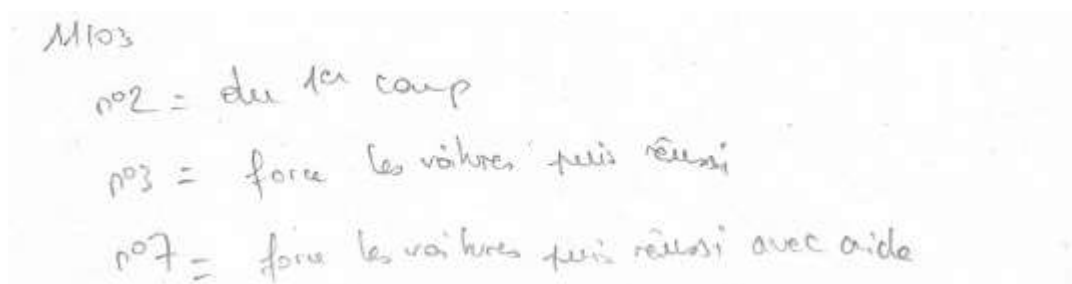 11/03
n°2 = du 1er coup
n°3 = force les voitures puis réussi
n°7 = force les voitures puis réussi avec aide